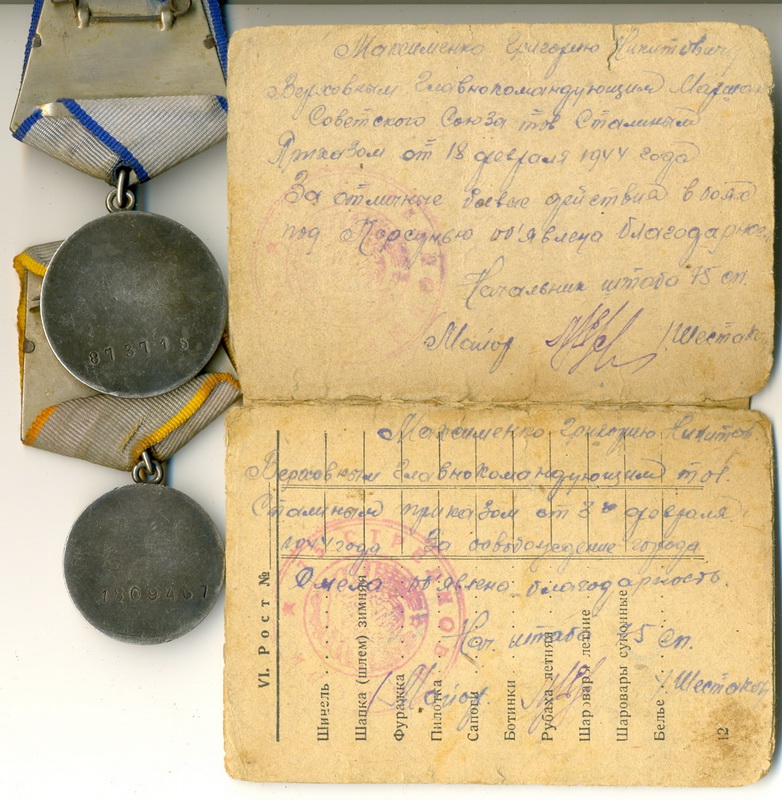 873715
1809467
Максименко Григорию Никитовичу
Верховным Главнокомандующим Маршал
Советского Союза тов Сталиным
Приказом от 18 февраля 1944 года
За отличные боевые действия в боях
под Корсунью об'явлена благодарнос
Начальник штаба 75 сп.
Майор /Шестак
Максименко Григорию Никитов
Верховным Главнокомандующим тов.
Сталиным приказом от февраля
1944 года За освобождение города
Смела об'явлена благодарность.
Нач. штаба 75 сп.
Майор /Шестаков
VI. Рост №
Шинель
Шапка (шлем) зимняя
Фуражка
Пилотка
Сапоги
Ботинки
Рубаха летняя
Шаровары летние
Шаровары суконные
Белье
12